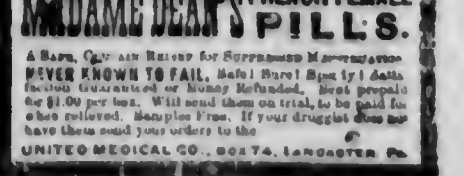 MADAME DEAN'S FRENCH FEMALE
PILLS.
A SAFE, CERTAIN RELIEF for SUPPRESSED MENSTRUATION.
NEVER KNOWN TO FAIL. Safe! Sure! Speedy! Satis-
faction Guaranteed or Money Refunded. Sent prepaid
for $1.00 per box. Will send them on trial, to be paid for
when relieved. Samples Free. If your druggist does not
have them send your orders to the
UNITED MEDICAL CO., BOX 74, LANCASTER, PA.